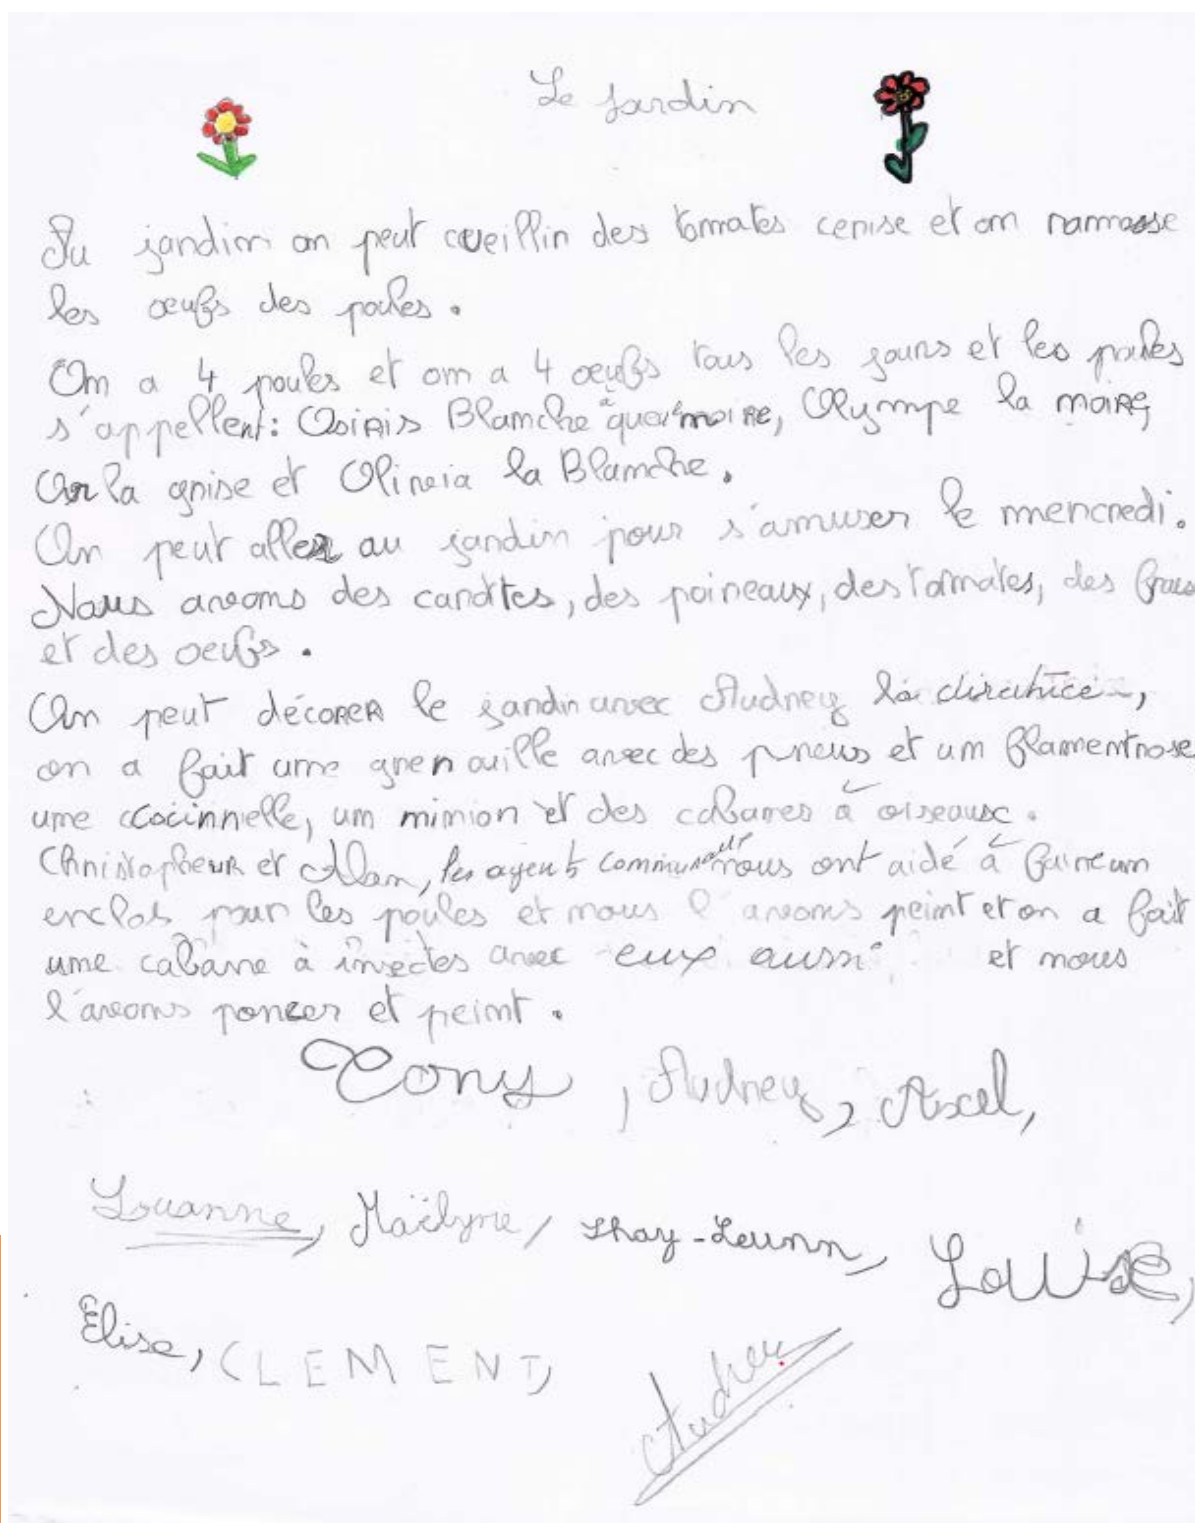 Le Jardin
Au jardin on peut cueillir des tomates cerise et on rammasse
les oeufs des poules.
On a 4 poules et on a 4 oeufs tous les jours et les poules
s'appellent: Osiris Blanche à queu noire, Olympe la noire,
la grise et la Blanche.
On peut aller au jardin pour s'amuser le mercredi.
Nous avons des carottes, des poireaux, des tomates, des
et des oeufs.
On peut décorer le jardin avec Audrey la directrice,
on a fait une grenouille avec des pneus et un flamentrose
une cocinnelle, un minion et des cabanes à oiseaux.
Christopheur et Alan, les agents communaux nous ont aidé à faire un
enclos pour les poules et nous l'avons peint et on a fait
une cabane à insectes avec eux aussi et nous
l'avons poncer et peint.
Tony, Audrey, Axcel,
Louanne, Maëlyne, Shay-Leunn, Louise,
Élise, CLEMENT,
Audrey